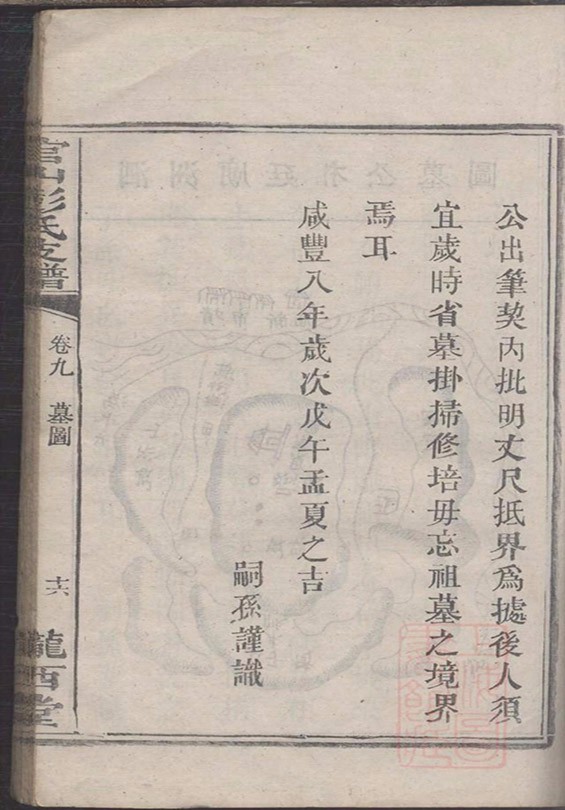 公出筆契內批明丈尺抵界為據後人須
宜歲時省墓掛掃修培毋忘祖墓之境界
焉耳
咸豐八年歲次戊午孟夏之吉
嗣孫謹識
官山彭氏支譜
卷九 墓圖
十六
隴西堂